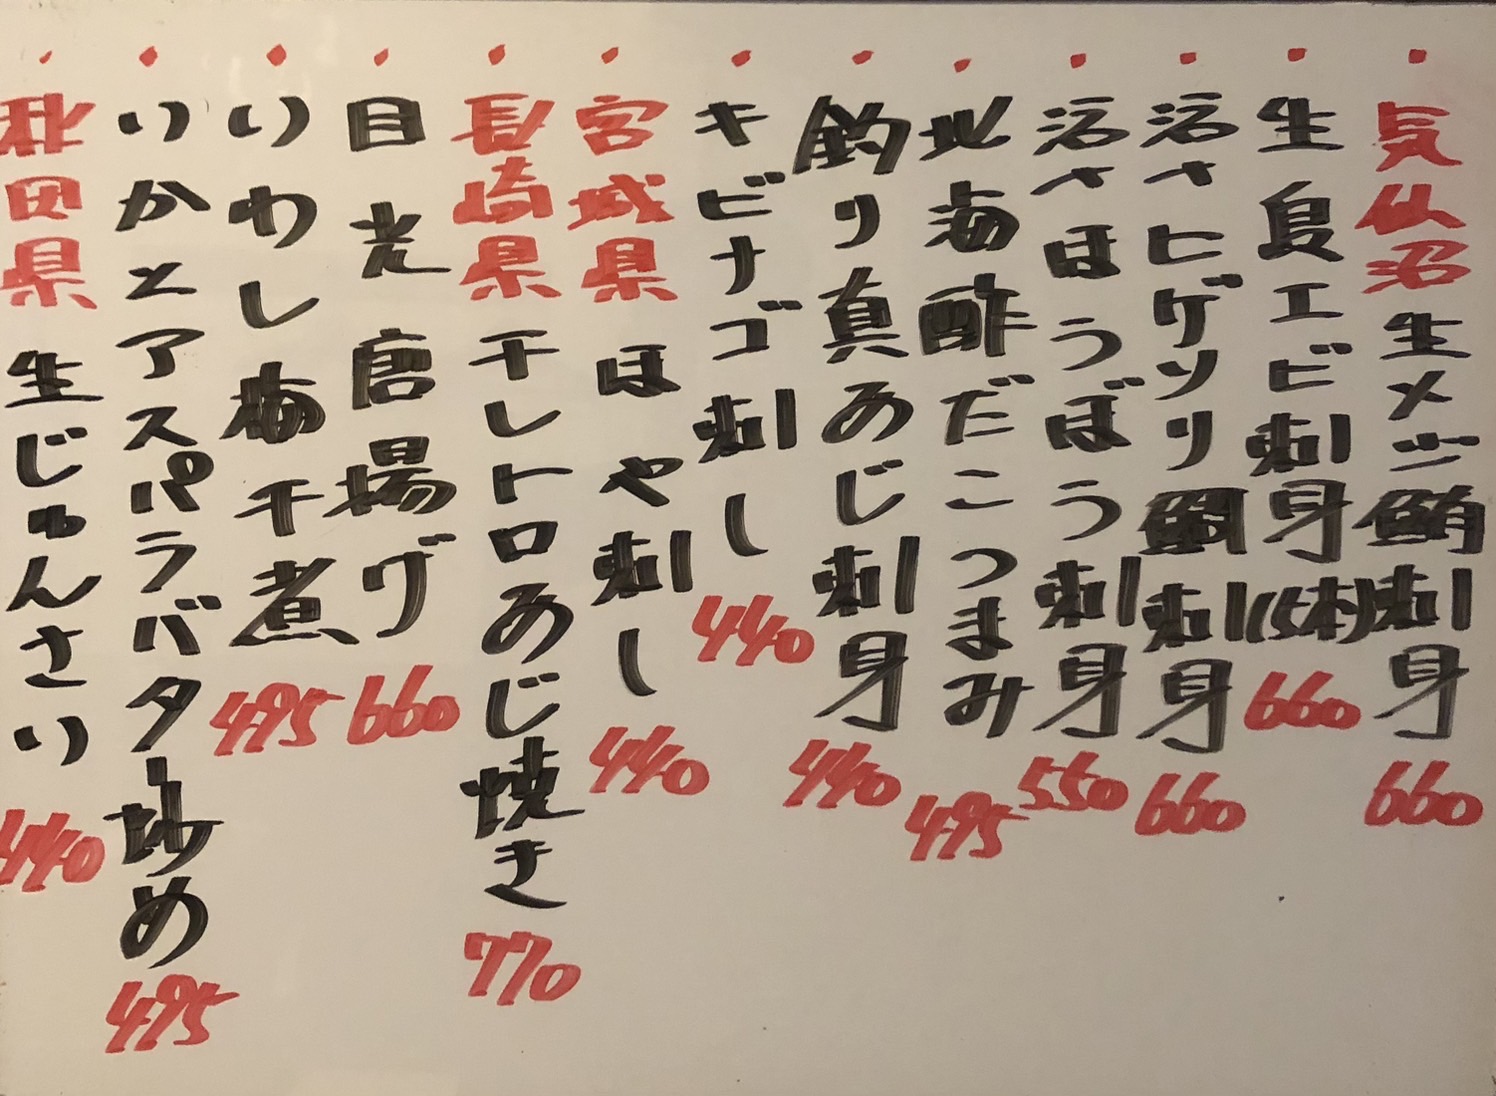 ・気仙沼 生メジ鮪刺身 660
・生良エビ刺身(5本) 660
・活〆ヒゲソリ鯛刺身 660
・活〆ほうぼう刺身 550
・北海酢だこつまみ 495
・釣り真あじ刺身 440
・キビナゴ刺し 440
・宮城県 ほや刺し 440
・長崎県 干しトロあじ焼き 770
・目光唐揚げ 660
・いわし梅干煮 495
・いかとアスパラバター炒め 495
・秋田県 生じゅんさい 440